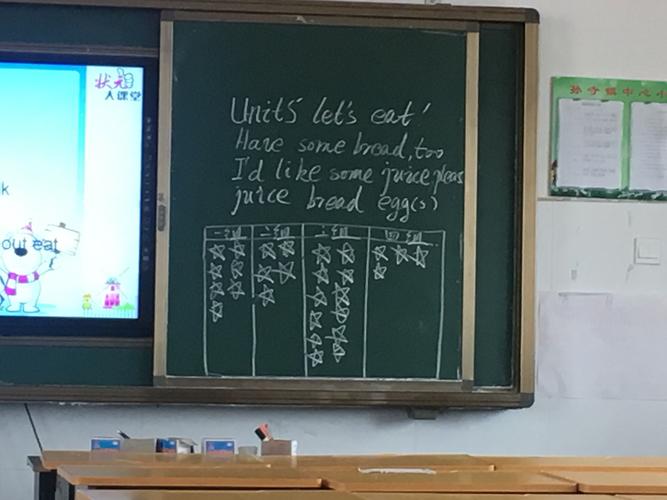 状元
大课堂
k
out eat
Unit5 let's eat!
Have some bread, too
I'd like some juice pleas
juice bread egg(s)
一组 二组 三组 四组
孙寺镇中心小